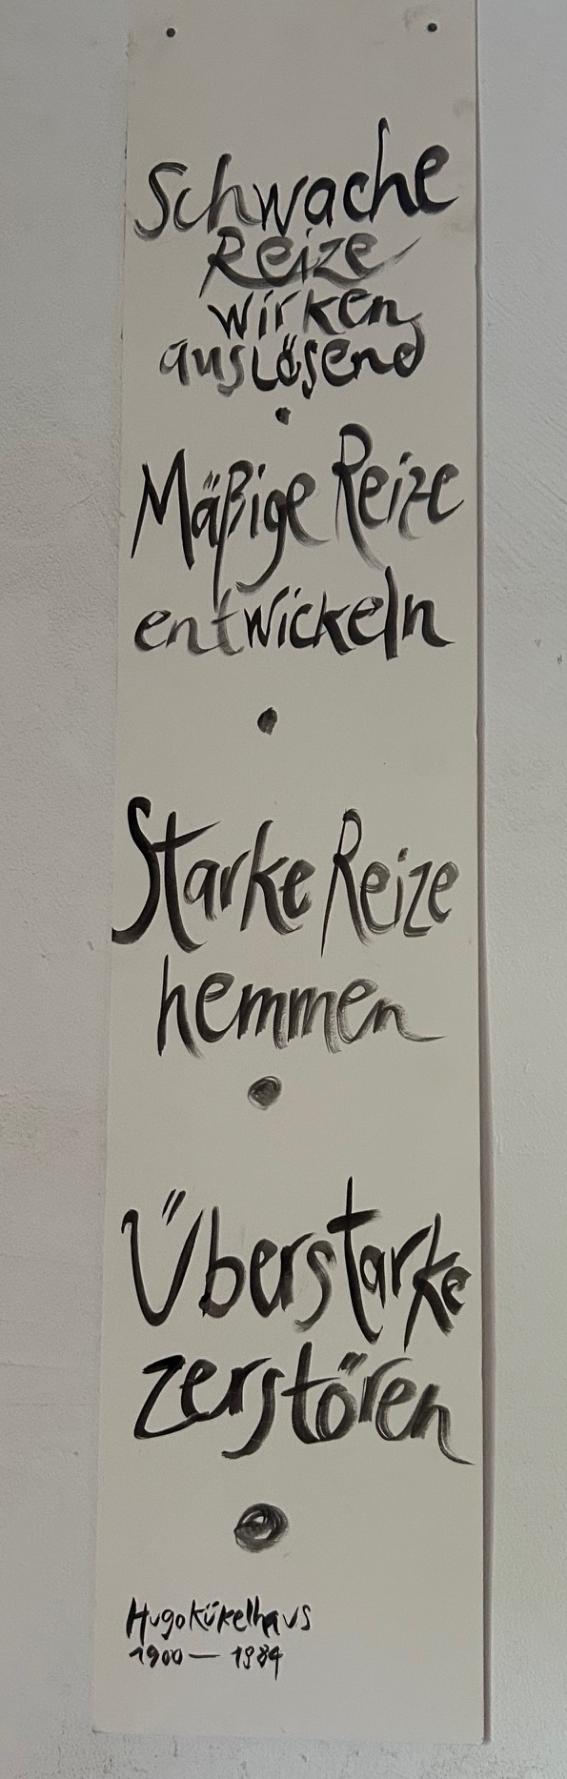 Schwache
Reize
wirken
auslösend
Mäßige Reize
entwickeln
Starke Reize
hemmen
Überstarke
zerstören
Hugo Kükelhaus
1900 — 1984